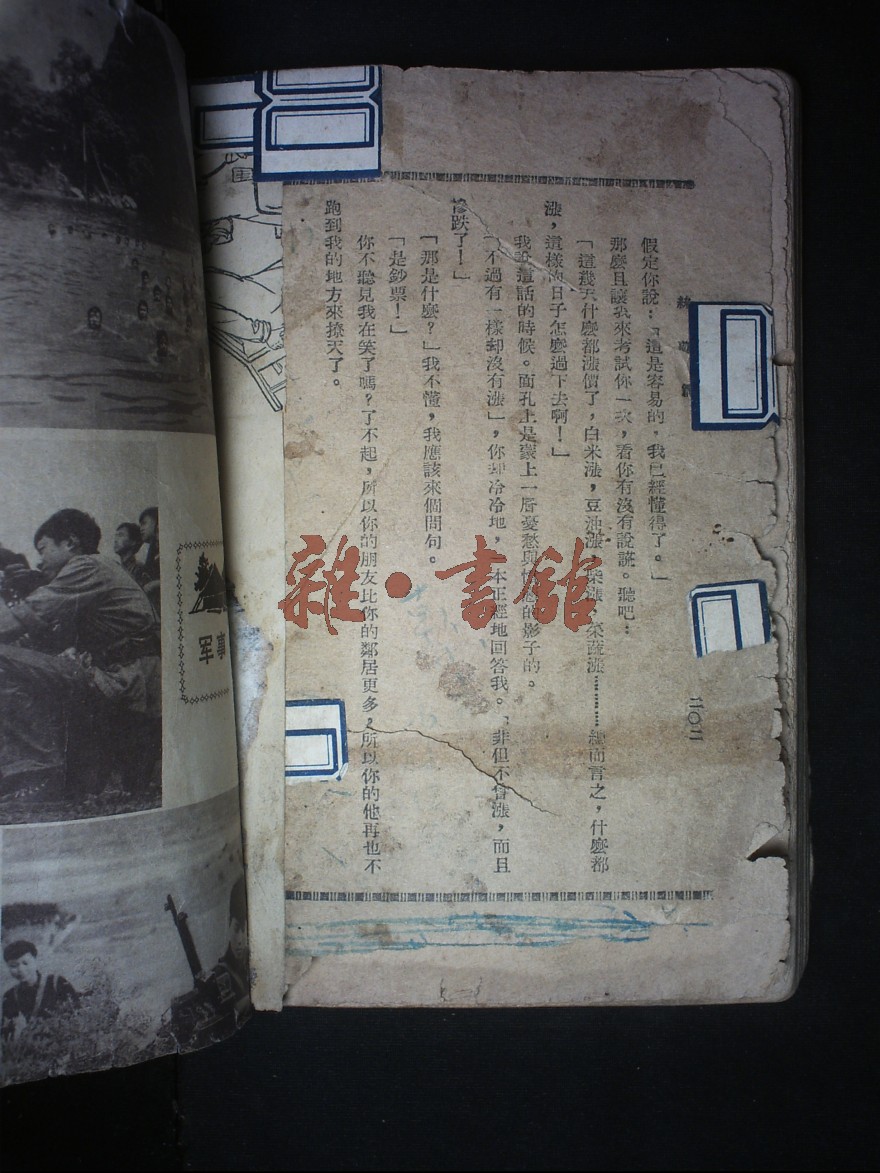 二〇二
假定你說:「這是容易的,我已經懂得了。」
那麽且讓我來考試你一次,看你有沒有說謊。聽吧:
「這幾天什麽都漲價了,白米漲,豆油漲,柴漲,菜蔬漲…………總而言之,什麽都
漲,這樣的日子怎麽過下去啊!」
我說這話的時候。面孔上是蒙上一層憂愁與的影子的。
「不過有一樣却沒有漲」,你却冷冷地,一本正經地回答我。「非但不會漲,而且
慘跌了!」
「那是什麽?」我不懂,我應該來個問句。
「是鈔票!」
你不聽見我在笑了嗎?了不起,所以你的朋友比你的鄰居更多,所以你的他再也不
跑到我的地方來撩天了。
军事
雜·書館